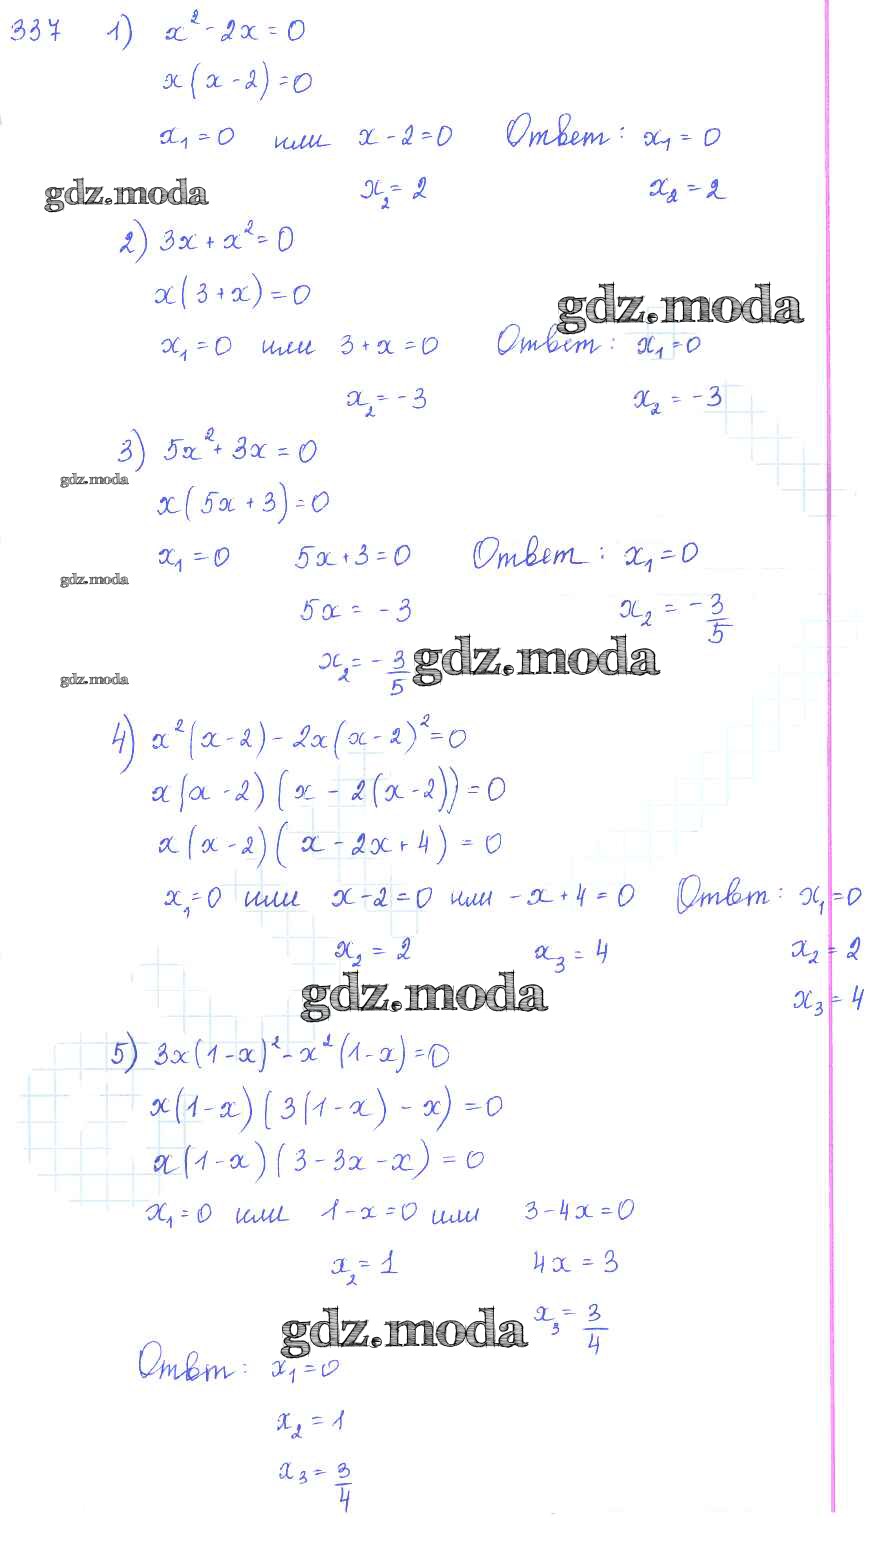 337 1) x² - 2x = 0
x(x - 2) = 0
x₁ = 0 или x - 2 = 0 Ответ: x₁ = 0
gdz.moda x₂ = 2 x₂ = 2
2) 3x + x² = 0
x(3 + x) = 0
gdz.moda
x₁ = 0 или 3 + x = 0 Ответ: x₁ = 0
x₂ = -3 x₂ = -3
3) 5x² + 3x = 0
gdz.moda
x(5x + 3) = 0
x₁ = 0 5x + 3 = 0 Ответ: x₁ = 0
gdz.moda
5x = -3 x₂ = -3/5
x₂ = -3/5 gdz.moda
gdz.moda
4) x²(x - 2) - 2x(x - 2)² = 0
x(x - 2)(x - 2(x - 2)) = 0
x(x - 2)(x - 2x + 4) = 0
x₁ = 0 или x - 2 = 0 или -x + 4 = 0 Ответ: x₁ = 0
x₂ = 2 x₃ = 4 x₂ = 2
gdz.moda x₃ = 4
5) 3x(1 - x)² - x²(1 - x) = 0
x(1 - x)(3(1 - x) - x) = 0
x(1 - x)(3 - 3x - x) = 0
x₁ = 0 или 1 - x = 0 или 3 - 4x = 0
x₂ = 1 4x = 3
gdz.moda x₃ = 3/4
Ответ: x₁ = 0
x₂ = 1
x₃ = 3/4